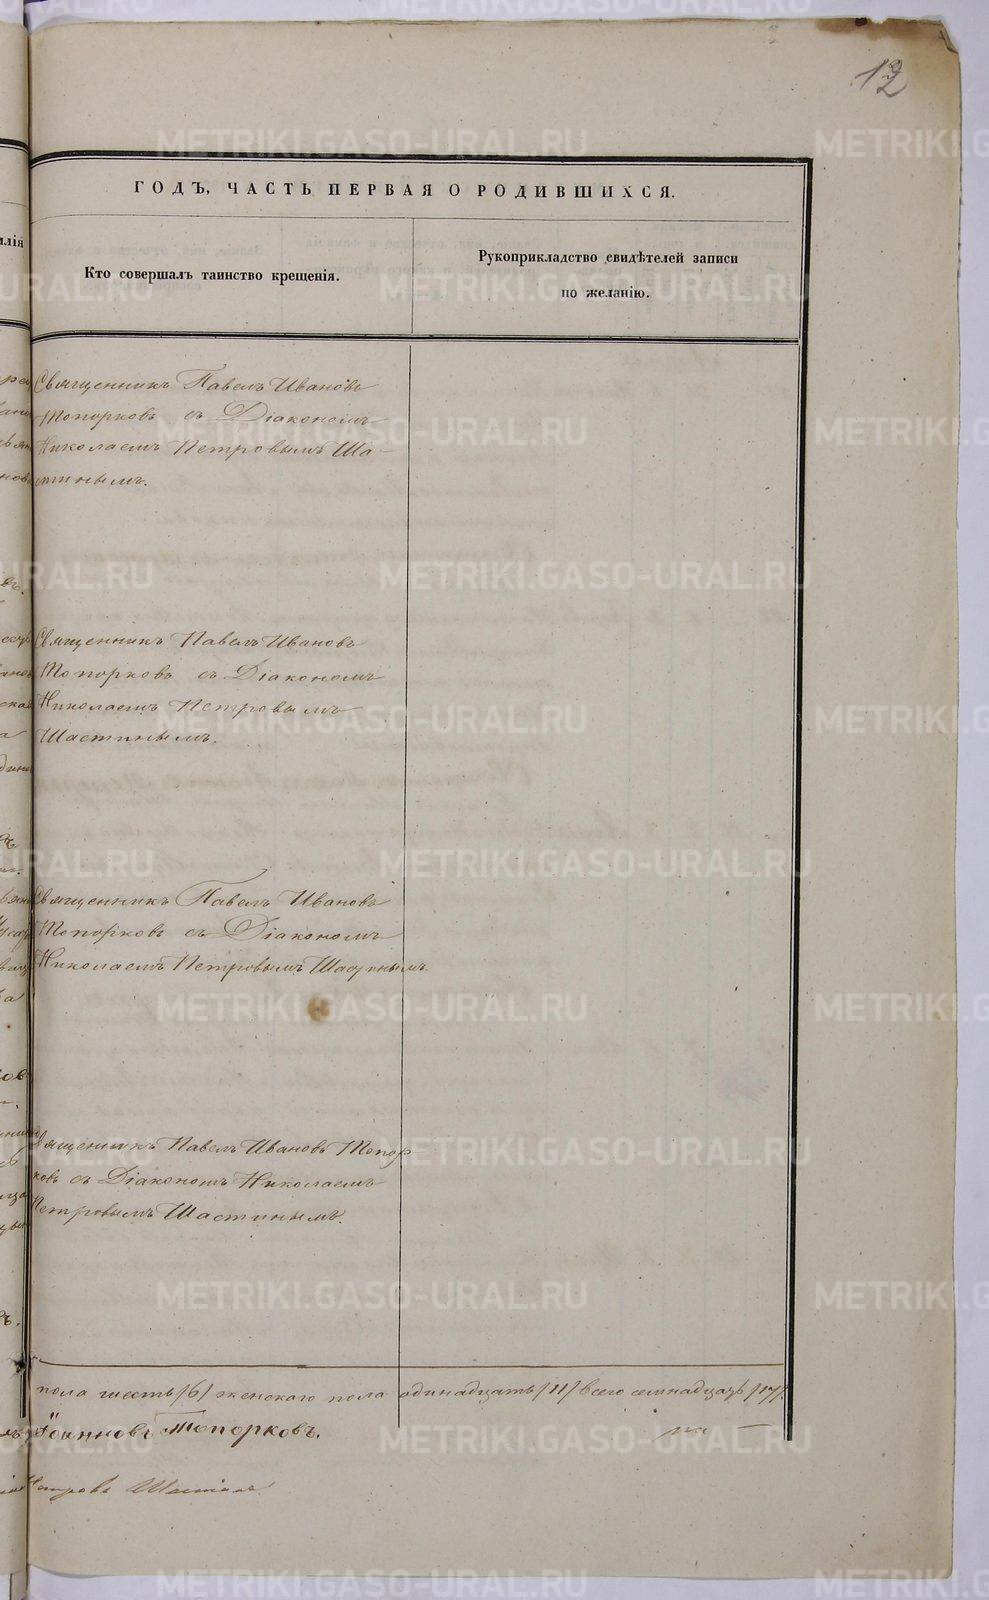 12
ГОДЪ, ЧАСТЬ ПЕРВАЯ О РОДИВШИХСЯ.
Кто совершалъ таинство крещенія.
Рукоприкладство свидѣтелей записи
по желанію.
Священникъ Павелъ Ивановъ
Топорковъ съ Діакономъ
Николаемъ Петровымъ Ша-
стинымъ.
Священникъ Павелъ Ивановъ
Топорковъ съ Діакономъ
Николаемъ Петровымъ
Шастинымъ.
Священникъ Павелъ Ивановъ
Топорковъ съ Діакономъ
Николаемъ Петровымъ Шастинымъ.
Священникъ Павелъ Ивановъ Топор
ковъ съ Діакономъ Николаемъ
Петровымъ Шастинымъ.
пола шесть /6/ женскаго пола одинадцать /11/ всего семнадцать /17/.
Іоанновъ Топорковъ.
Петровъ Шастинъ
METRIKI.GASO-URAL.RU